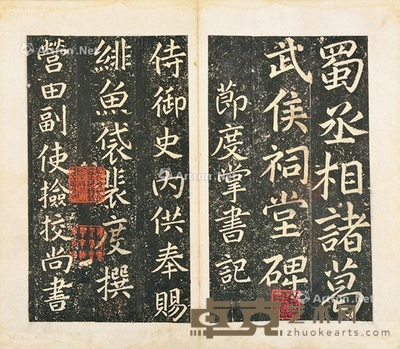 蜀丞相諸葛
武侯祠堂碑
節度掌書記
侍御史内供奉賜
緋魚袋裴度撰
營田副使檢校尚書
卓克艺术网
zhuokearts.com